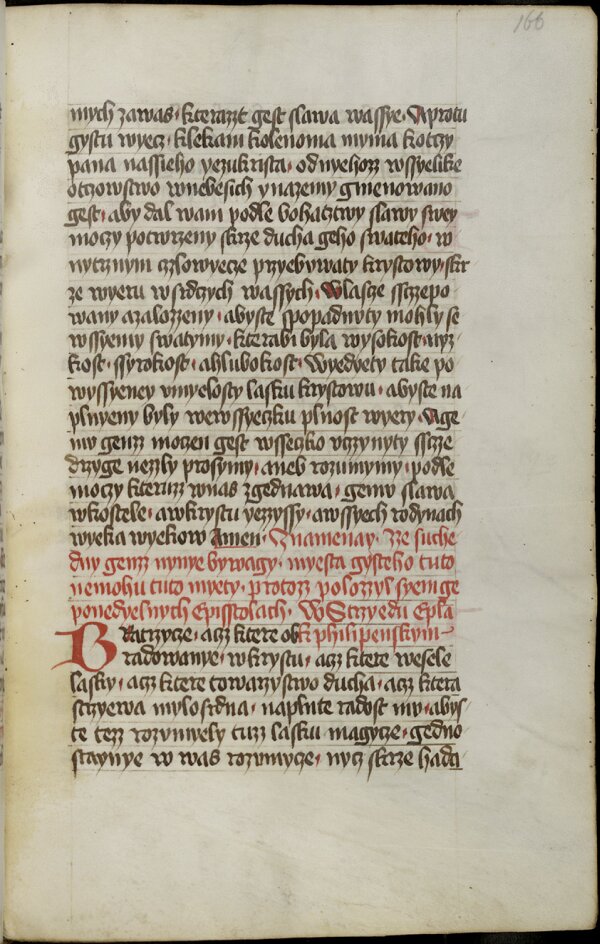 166
mych zawas · kterazt gest slawa wassye · Aprotu
gystu wyecz · klekam kolenoma myma kotczy
pana nassieho yezukrista · odnyehozz wssyelike
otczowstwo wnebesich ynazemy gmenowano
gest · aby dal wam podle bohatztwy slawy swey
moczy potwrzeny skrze ducha geho swateho · w
nytrznym czlowyecze przyebywaty krystowy · skr
ze wyeru wsrdczych wassych · Wlasze sszczepo
wany azalozzeny · abyste spopadnuty mohly se
wssyemy swatymy · kterabi byla wysokost · nyz
kost · ssyrokost · ahlubokost · Wyedyety take po
wyssyeney vmyelosty lasku krystowu · abyste na
plnyeny byly wewssyeczku plnost wyery · Age
mu genzz moczen gest wsseczko vczynyty sscze
drzyge nezzly prosymy · aneb rozumymy · podle
moczy kteruzz wnas zgednawa · gemu slawa
wkostele · awkrystu yezyssy · awssyech rodynach
wyeka wyekow Amen · Znamenay · Zze suche
dny genzz nynye bywagy · myesta gysteho tuto
nemohu tuto myety · protozz polozzyl syem ge
ponedyelnych Episstolach · W Strzyedu Epla
Bratrzycze · acz ktere ob k philipenskym
radowanye · wkrystu · acz ktere wesele
lasky · acz ktere towarzystwo ducha · acz ktera
strzyewa mylosrdna · naplnte radost mu · abys
te tezz rozumyely tuzz lasku magycze · gedno
staynye w was rozumycze · nycz skrze hadu